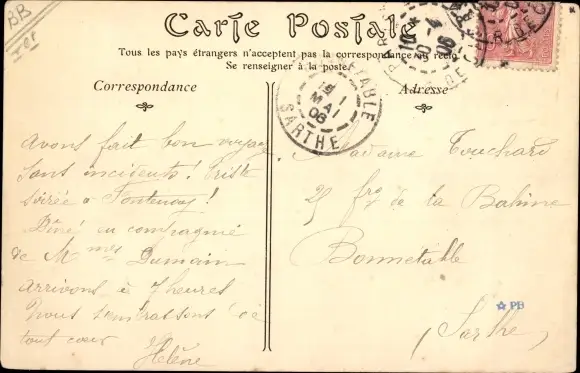 BB
Carte Postale
Tous les pays étrangers n'acceptent pas la correspondance au recto
Se renseigner à la poste
Correspondance
Adresse
BONNETABLE
MAI
06
SARTHE
Avons fait bon voyage
sans incidents! Triste
soirée à Fontenay!
Dîné en compagnie
de Mmes Dumain
Arrivons à 7 heures
Vous embrassons de
tout cœur
Hélène
Madame Touchard
25 frg de la
Bonnetable
(Sarthe)
PB